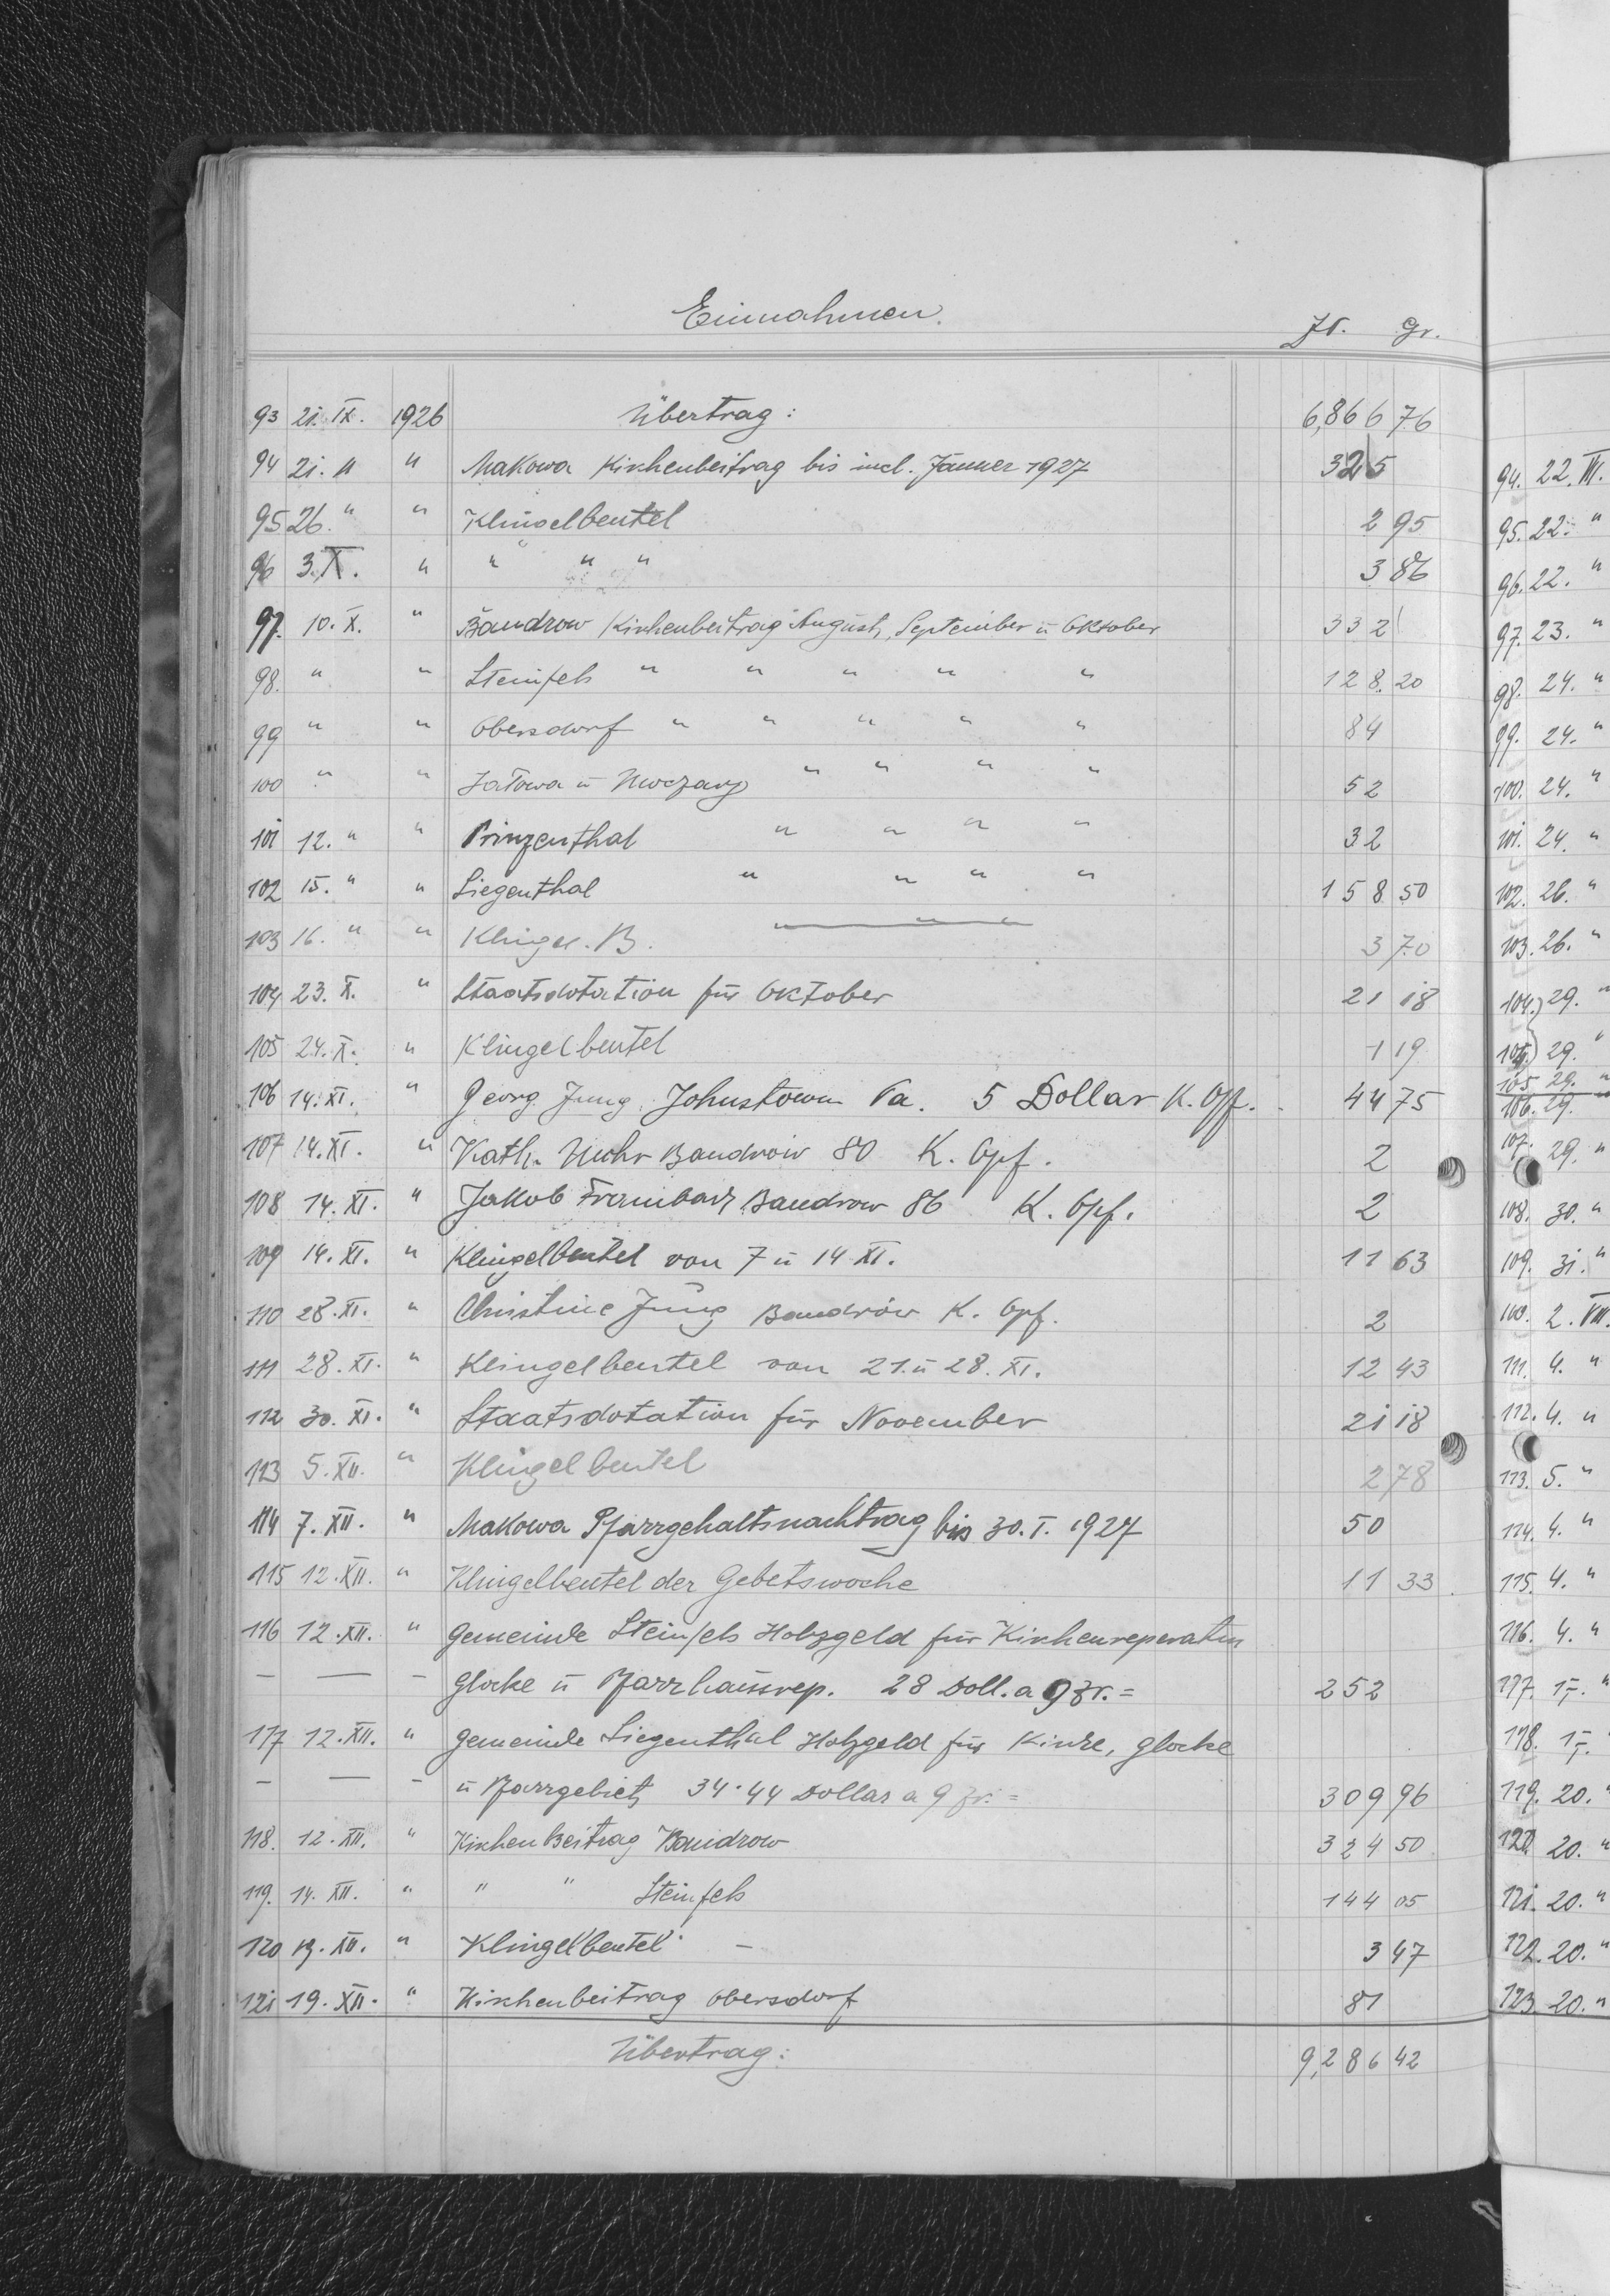 Einnahmen.
Zł. Gr.
93 21. IX. 1926 Übertrag: 6,866 76
94 21. " " Makowa Kirchenbeitrag bis incl. Jänner 1927 325
95 26. " " Klingelbeutel 2 95
96 3. X. " " " " 3 86
97. 10. X. " Bandrow Kirchenbeitrag August, September u Oktober 332
98. " " Steinfels " " " " " 128. 20
99 " " Obersdorf " " " " " 84
100 " " Jałowa u Moczary " " " " 52
101 12. " " Prinzenthal " " " " 32
102 15. " " Siegenthal " " " " 158 50
103 16. " " Klingel. B. 3 70
104 23. X. " Staatsdotation für Oktober 21 18
105 24. X. " Klingelbeutel 1 19
106 14. XI. " Georg Jung, Johnstown Pa. 5 Dollar K. Opf. 44 75
107 14. XI. " Kath. Bandrow 80 K. Opf. 2
108 14. XI. " Jakob Frambach Bandrow 86 K. Opf. 2
109 14. XI. " Klingelbeutel von 7 u 14 XI. 11 63
110 28. XI. " Christine Jung Bandrów K. Opf. 2
111 28. XI. " Klingelbeutel von 21. u 28. XI. 12 43
112 30. XI. " Staatsdotation für November 21 18
113 5. XII. " Klingelbeutel 2 78
114 7. XII. " Makowa Pfarrgehaltsnachtrag bis 30. I. 1927 50
115 12. XII. " Klingelbeutel der Gebetswoche 11 33
116 12. XII. " Gemeinde Steinfels Holzgeld für Kirchenreperatur
— — — Glocke u Pfarrhausrep. 28 Doll. a 9 Zr. = 252
117 12. XII. " Gemeinde Siegenthal Holzgeld für Kirche, Glocke
— — — u Pfarrgebiet 34·44 Dollar a 9 Zr. = 309 96
118. 12. XII. " Kirchen Beitrag Bandrow 324 50
119. 14. XII. " " " Steinfels 144 05
120 19. XII. " Klingelbeutel — 3 47
121 19. XII. " Kirchenbeitrag Obersdorf 81
Übertrag: 9,286 42
94. 22. VII.
95. 22. "
96. 22. "
97. 23. "
98. 24. "
99. 24. "
100. 24. "
101. 24. "
102. 26. "
103. 26. "
104. 29. "
29. "
105 29. "
106. 29.
107. 29. "
108. 30. "
109. 31. "
110. 2. VIII.
111. 4. "
112. 4. "
113. 5. "
114. 4. "
115. 4. "
116. 4. "
117. "
118.
119. 20. "
120 20. "
121. 20. "
122. 20. "
123. 20. "